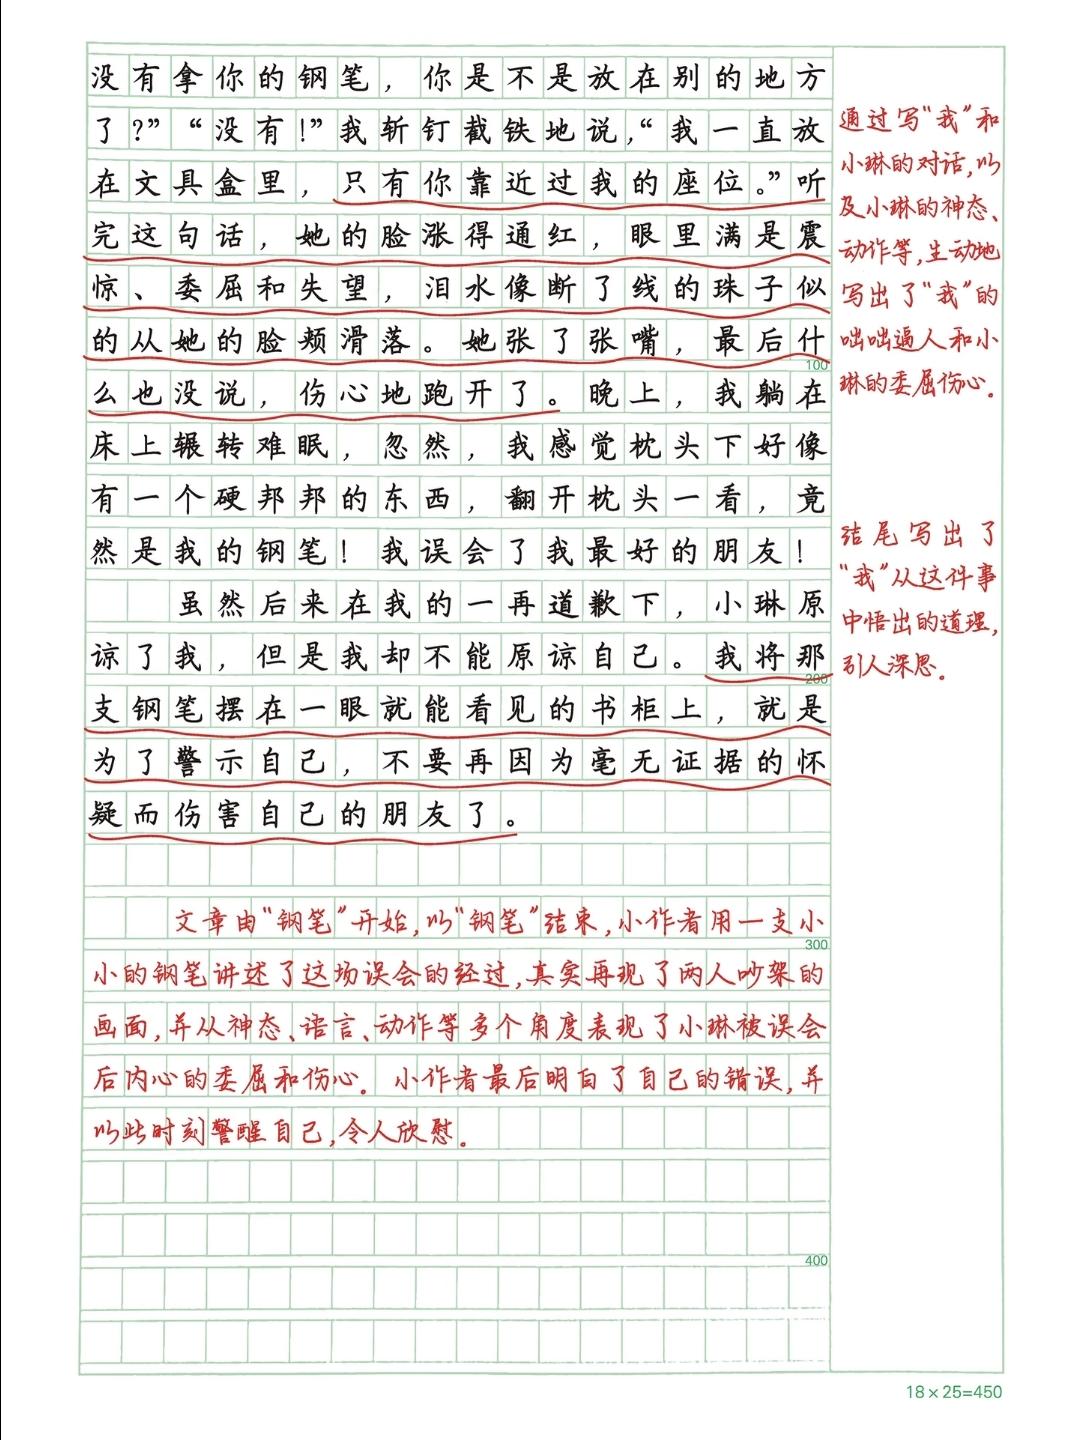 没有拿你的钢笔，你是不是放在别的地方
了？”“没有！”我斩钉截铁地说，“我一直放
在文具盒里，只有你靠近过我的座位。”听
完这句话，她的脸涨得通红，眼里满是震
惊、委屈和失望，泪水像断了线的珠子似
的从她的脸颊滑落。她张了张嘴，最后什
100
么也没说，伤心地跑开了。晚上，我躺在
床上辗转难眠，忽然，我感觉枕头下好像
有一个硬邦邦的东西，翻开枕头一看，竟
然是我的钢笔！我误会了我最好的朋友！
虽然后来在我的一再道歉下，小琳原
谅了我，但是我却不能原谅自己。我将那
200
支钢笔摆在一眼就能看见的书柜上，就是
为了警示自己，不要再因为毫无证据的怀
疑而伤害自己的朋友了。
通过写“我”和
小琳的对话，以
及小琳的神态、
动作等，生动地
写出了“我”的
咄咄逼人和小
琳的委屈伤心。
结尾写出了
“我”从这件事
中悟出的道理，
引人深思。
文章由“钢笔”开始，以“钢笔”结束，小作者用一支小
300
小的钢笔讲述了这场误会的经过，真实再现了两人吵架的
画面，并从神态、语言、动作等多个角度表现了小琳被误会
后内心的委屈和伤心。小作者最后明白了自己的错误，并
以此时刻警醒自己，令人欣慰。
400
18×25=450